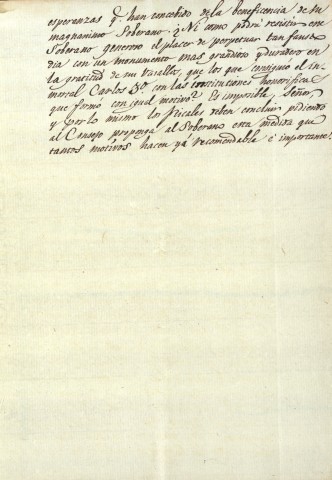 esperanzas q.e han concebido de la beneficencia de su
magnanimo Soberano. ¿Ni como podrá resistir este
Soberano generoso el placer de perpetuar tan fausto
dia con un monumento mas grandioso y duradero en
la gratitud de sus vasallos, que los que consiguió el in-
mortal Carlos 3.º con las instituciones honorificas
que formó con igual motivo? Es imposible, Señor,
y por lo mismo los fiscales deben concluir pidiendo
al Consejo proponga al Soberano esta medida que
tantos motivos hacen yá recomendable é importante.